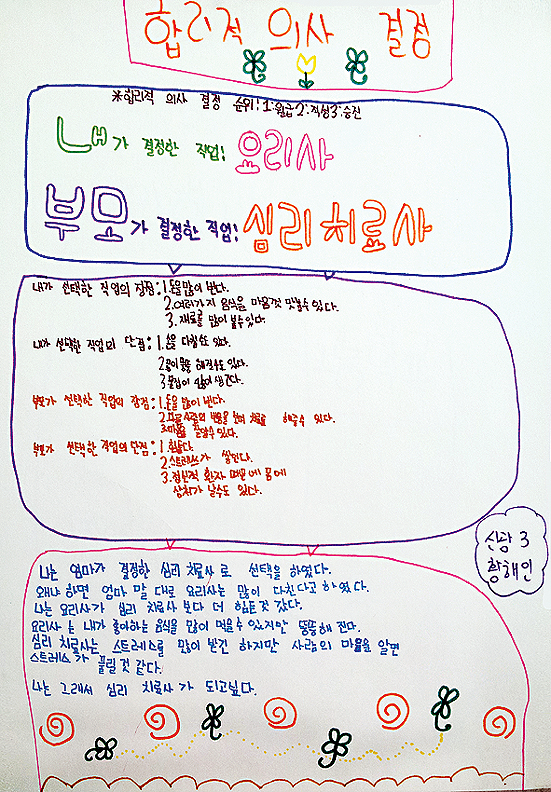 합리적 의사 결정
※합리적 의사 결정 순위: 1:월급 2:적성 3:승진
내가 결정한 직업! 요리사
부모가 결정한 직업! 심리치료사
내가 선택한 직업의 장점: 1.돈을 많이 번다.
2.여러가지 음식을 마음껏 맛볼수 있다.
3. 재료를 많이 볼수있다.
내가 선택한 직업의 단점: 1.손을 다칠수도 있다.
수도 있다.
3.
부모가 선택한 직업의 장점: 1.돈을 많이 번다.
2. 치료 해줄수 있다.
3.마음을 알수 있다.
부모가 선택한 직업의 단점: 1.힘들다.
2.스트레스가 쌓인다.
3.정신적 환자 때문에 몸에
상처가 날수도 있다.
신담 3
황해인
나는 엄마가 결정한 심리 치료사로 선택을 하였다.
왜냐 하면 엄마 말 대로 요리사는 많이 다친다고 하였다.
나는 요리사가 심리 치료사 보다 더 힘든것 같다.
요리사는 내가 좋아하는 음식을 많이 먹을수 있지만 뚱뚱해 진다.
심리 치료사는 스트레스를 많이 받긴 하지만 사람의 마음을 알면
스트레스가 풀릴 것 같다.
나는 그래서 심리 치료사가 되고싶다.